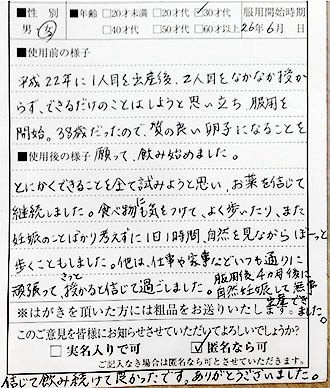 ■性別 ■年齢 □20才未満 □20才代 ☑30才代 服用開始時期
男 ・ 女 □40才代 □50才代 □60才以上 26年6月 日
■使用前の様子
平成22年に1人目を出産後、2人目をなかなか授か
らず、できるだけのことはしようと思い立ち 服用を
開始。38歳だったので、質の良い卵子になることを
■使用後の様子 願って、飲み始めました。
とにかくできることを全て試みようと思い、お薬を信じて
継続しました。食べ物にも気をつけて、よく歩いたり、また
妊娠のことばかり考えずに1日1時間、自然を見ながらぼーっと
歩くこともしました。他は、仕事や家事などいつも通りに
頑張って、きっと授かると信じて過ごしました。服用後4ヵ月後に
自然妊娠して無事
出産できました。
※はがきを頂いた方には粗品をお送りいたします。
このご意見を皆様にお知らせさせていただいてよろしいでしょうか?
□実名入りで可 ☑匿名なら可
ご記入なき場合は匿名なら可とさせていただきます。
信じて飲み続けて良かったです。ありがとうございました。